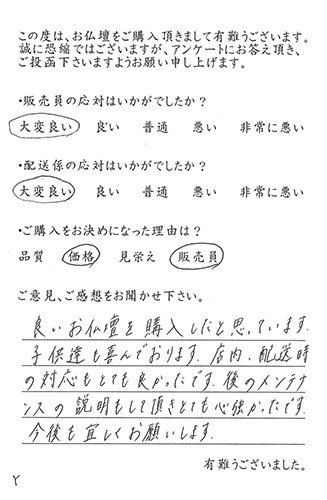 この度は、お仏壇をご購入頂きまして有難うございます。
誠に恐縮ではございますが、アンケートにお答え頂き、
ご投函下さいますようお願い申し上げます。
・販売員の応対はいかがでしたか？
大変良い 良い 普通 悪い 非常に悪い
・配送係の応対はいかがでしたか？
大変良い 良い 普通 悪い 非常に悪い
・ご購入をお決めになった理由は？
品質 価格 見栄え 販売員
ご意見、ご感想をお聞かせ下さい。
良いお仏壇を購入したと思っています。
子供達も喜んでおります。店内、配送時
の対応もとても良かったです。後のメンテナ
ンスの説明もして頂きとても心強かったです。
今後も宜しくお願いします。
有難うございました。
Y